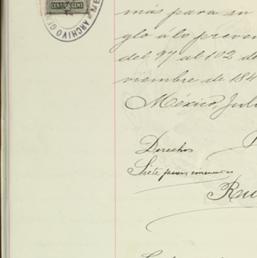 CENT
ARCHIVO G
más para su
glo a lo preve
del 97 al 102 d
viembre de 184
México, Juli
Derechos
Siete pesos
Ru